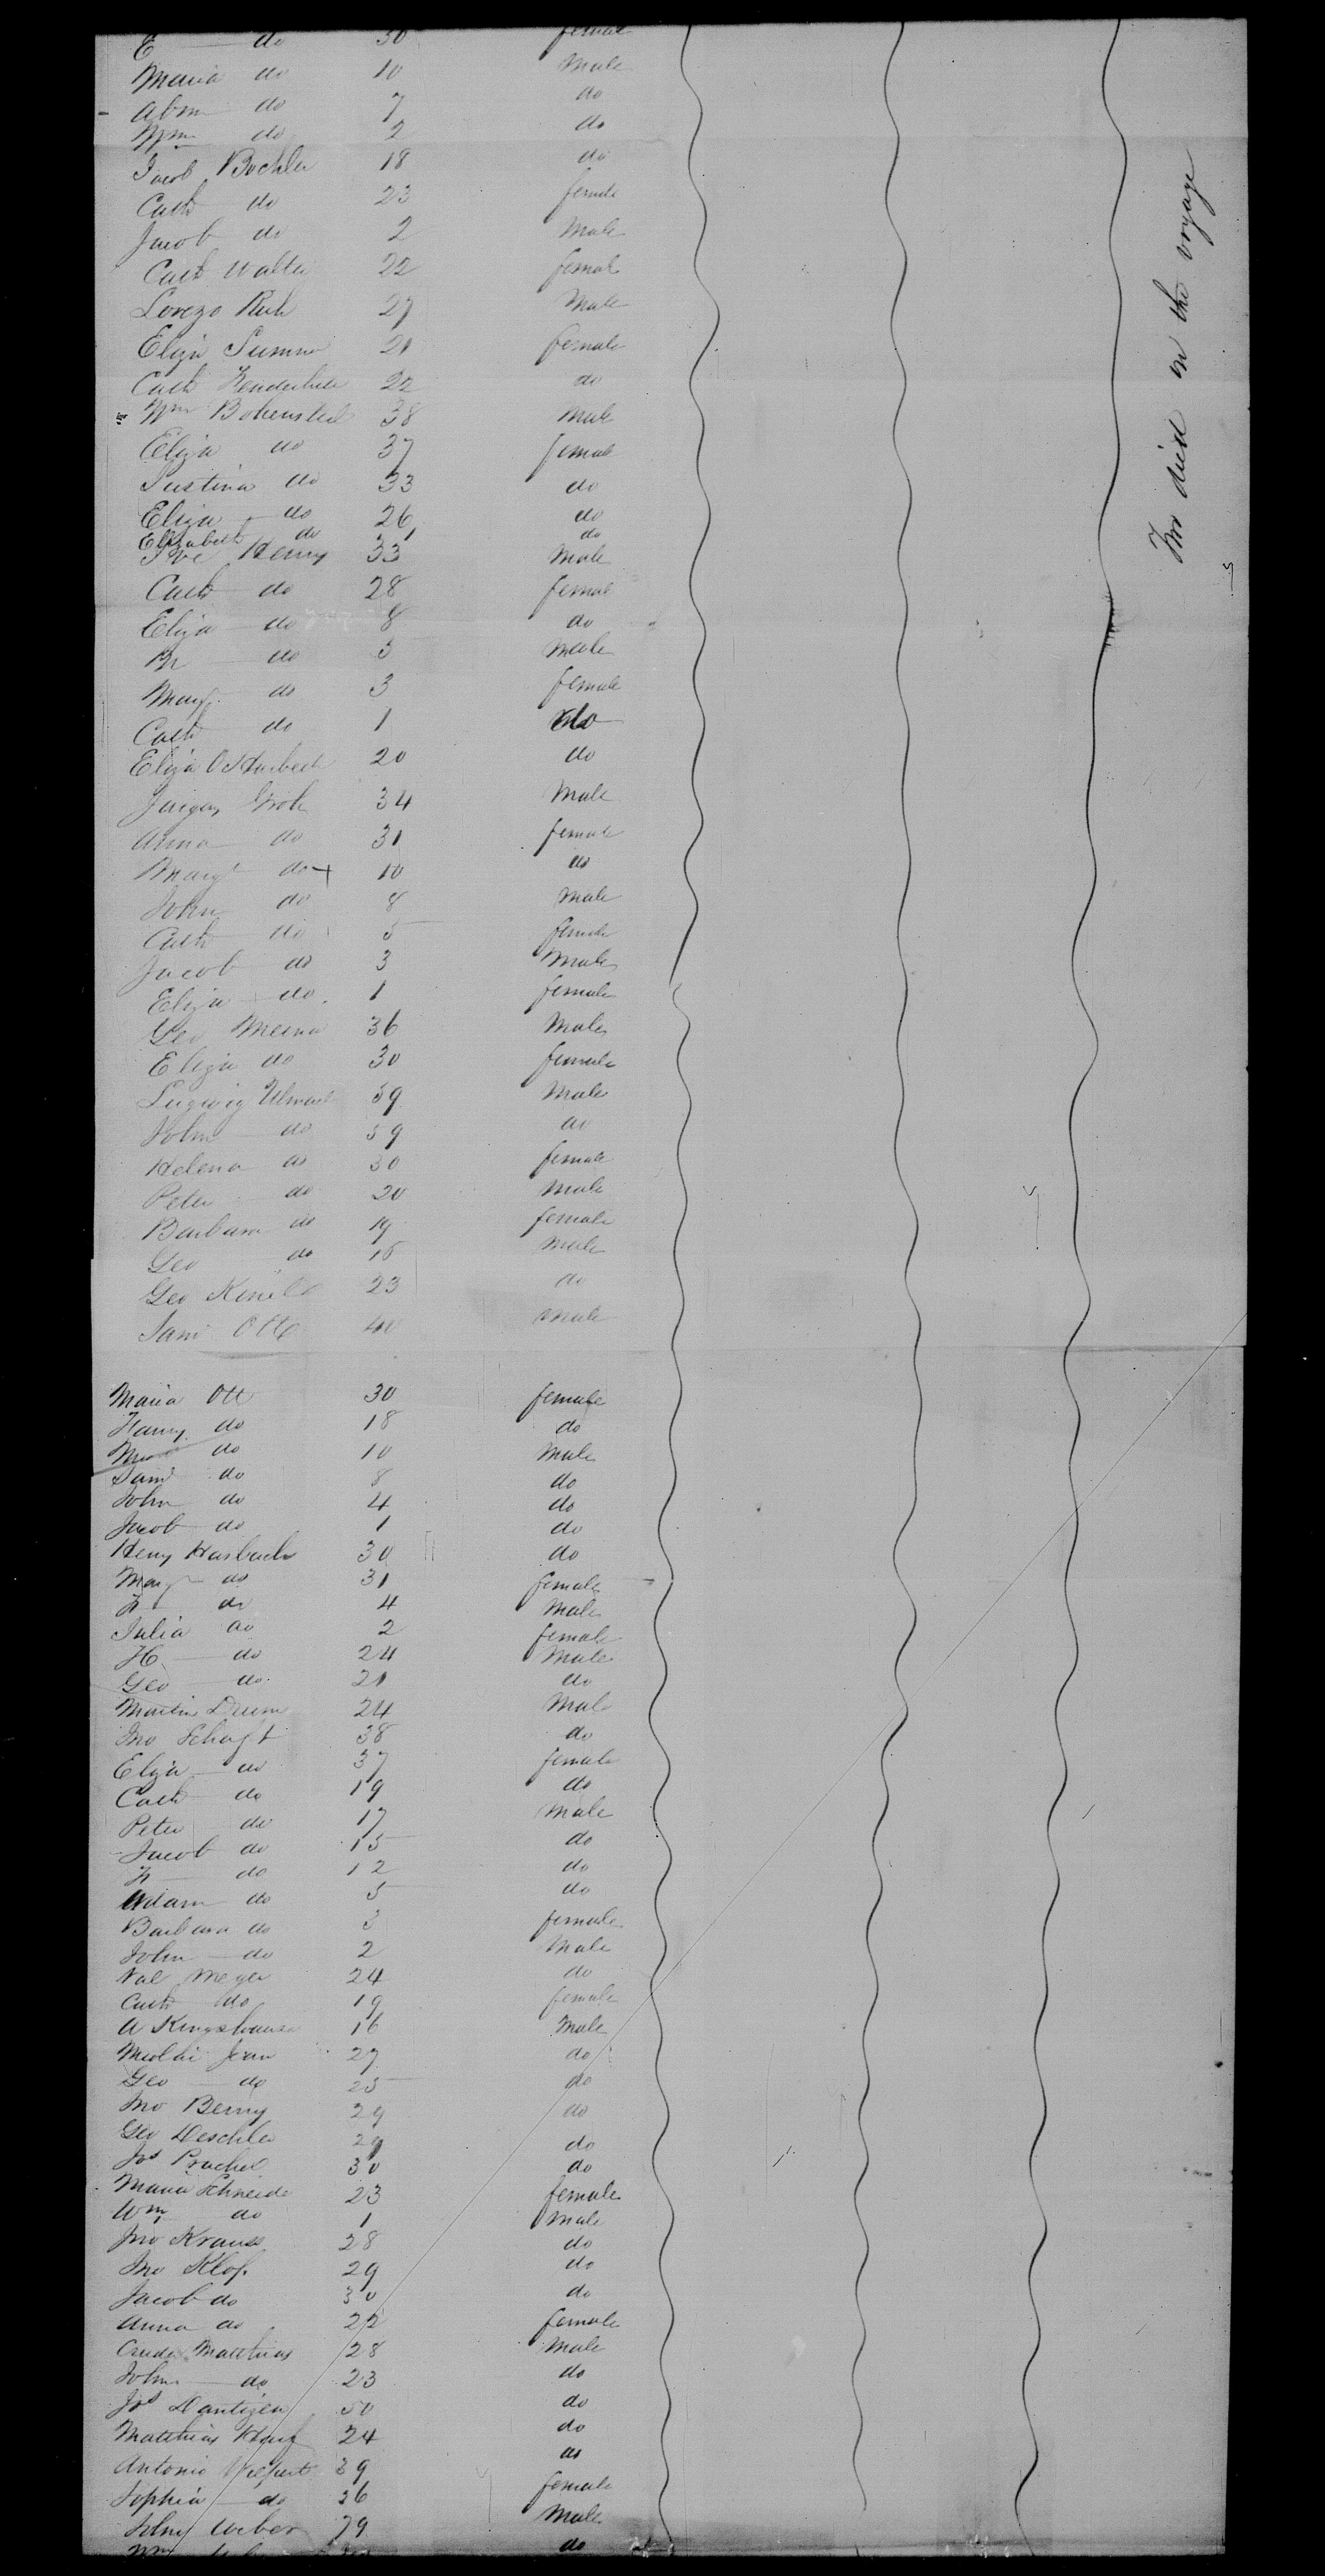 E do 30 female
Maria do 10 Male
Abm do 7 do
Wm do 2 do
Jacob Bochler 18 do
Cath do 23 female
Jacob do 2 Male
Cath Walter 22 female
Lorezo Ruh 27 Male
Eliza Summe 21 female
Cath 22 do
Wm Bohensted 38 Male
Eliza do 37 female
Justina do 33 do
Eliza do 26 do
Elizabeth do 31 do
Henry 33 Male
Cath do 28 female
Eliza do 8 do
do 5 male
Marg do 3 female
Cath do 1 do
Eliza 20 do
Jurgen Groh 34 Male
Anna do 31 female
Margt do 10 do
John do 8 male
Cath do 5 female
Jacob do 3 Male
Eliza do 1 female
Geo Meina 36 Male
Eliza do 30 female
Lugwig 39 Male
John do 39 do
Helena do 30 female
Peter do 20 male
Barbara do 19 female
Geo do 15 male
Geo 23 do
Saml Otte 40 male
Maria Ott 30 female
Fanny do 18 do
do 10 male
Saml do 8 do
John do 4 do
Jacob do 1 do
Heny Harbach 30 do
Marg do 31 female
Fr do 4 Male
Julia do 2 female
H do 24 Male
Geo do 21 do
Martin Drum 24 Male
Jno Schaft 38 do
Eliza do 37 female
Cath do 19 do
Peter do 17 male
Jacob do 15 do
Fr do 12 do
Adam do 5 do
Barbara do 3 female
John do 2 Male
Val Meyer 24 do
Cath do 19 female
A Kingshause 16 Male
Nicolai Jean 27 do
Geo do 25 do
Jno Berny 29 do
Geo Deschler 29 do
Jos Prachel 30 do
Maria Schneide 23 female
Wm do 1 male
Jno Krauss 28 do
Jno Klop 29 do
Jacob do 30 do
Anna do 22 female
Matthias 28 Male
John do 23 do
Jos Dantizer 50 do
Matthias Hauf 24 do
Antonio 39 do
Sophia do 36 female
John Weber 29 Male
Wm do
Two died on the voyage